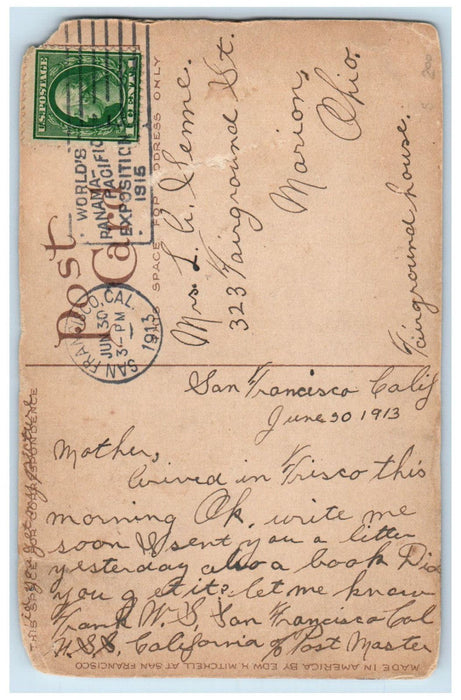 U.S. POSTAGE
1 CENT 1
WORLD'S
PANAMA-
PACIFIC
EXPOSITION
1915
SAN FRANCISCO, CAL.
JUN 30
3-PM
1913
Post
Card
SPACE FOR ADDRESS ONLY
Mrs. L. A.
323 Fairground St.
Marion,
Ohio.
Fairground house.
200
San Francisco Calif
June 30 1913
Mother,
Arived in Frisco this
morning Ok. write me
soon I sent you a letter
yesterday also a book Did
you get it? let me know
Frank W. S. San Francisco Cal
U.S.S. California c/o Post Master
did you get my picture
THIS SPACE FOR CORRESPONDENCE
MADE IN AMERICA BY EDW. H. MITCHELL AT SAN FRANCISCO